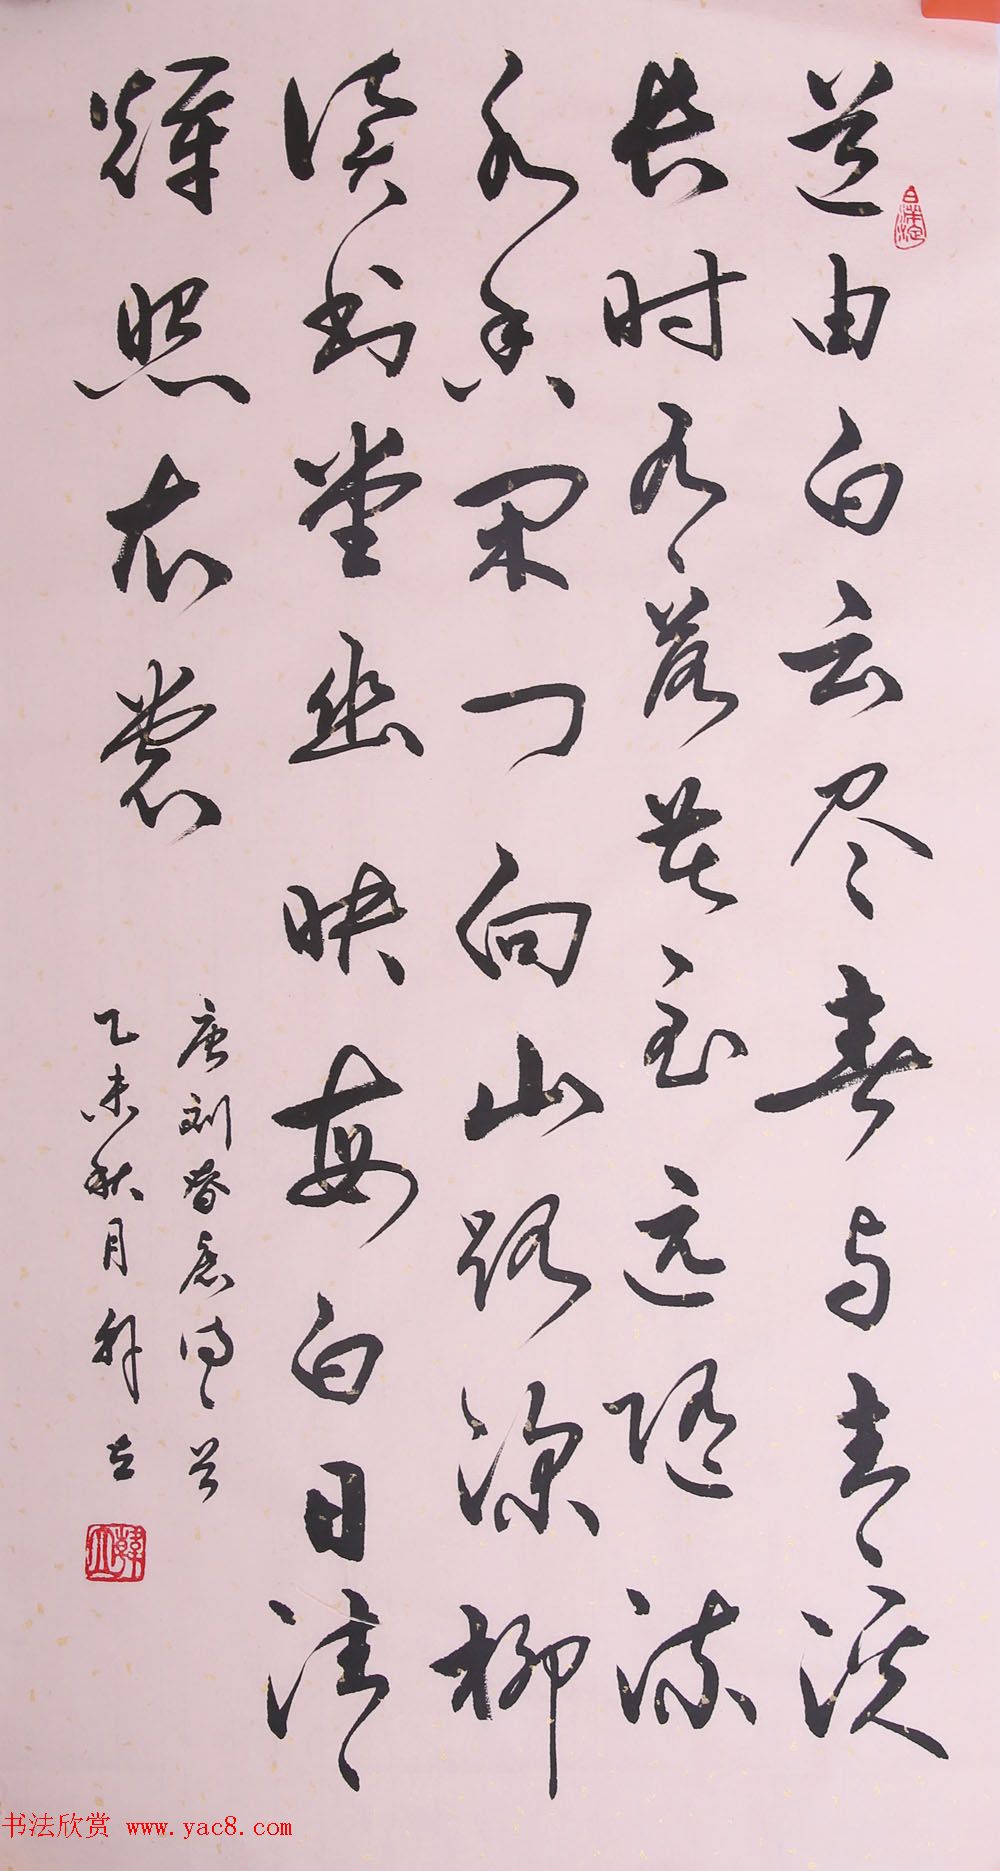 道由白云尽春与青溪
长时有落花至远随流
水香闲门向山路深柳
读书堂幽映每白日清
辉照衣裳
唐刘昚虚诗一首
乙未秋月韩立
书法欣赏 www.yac8.com